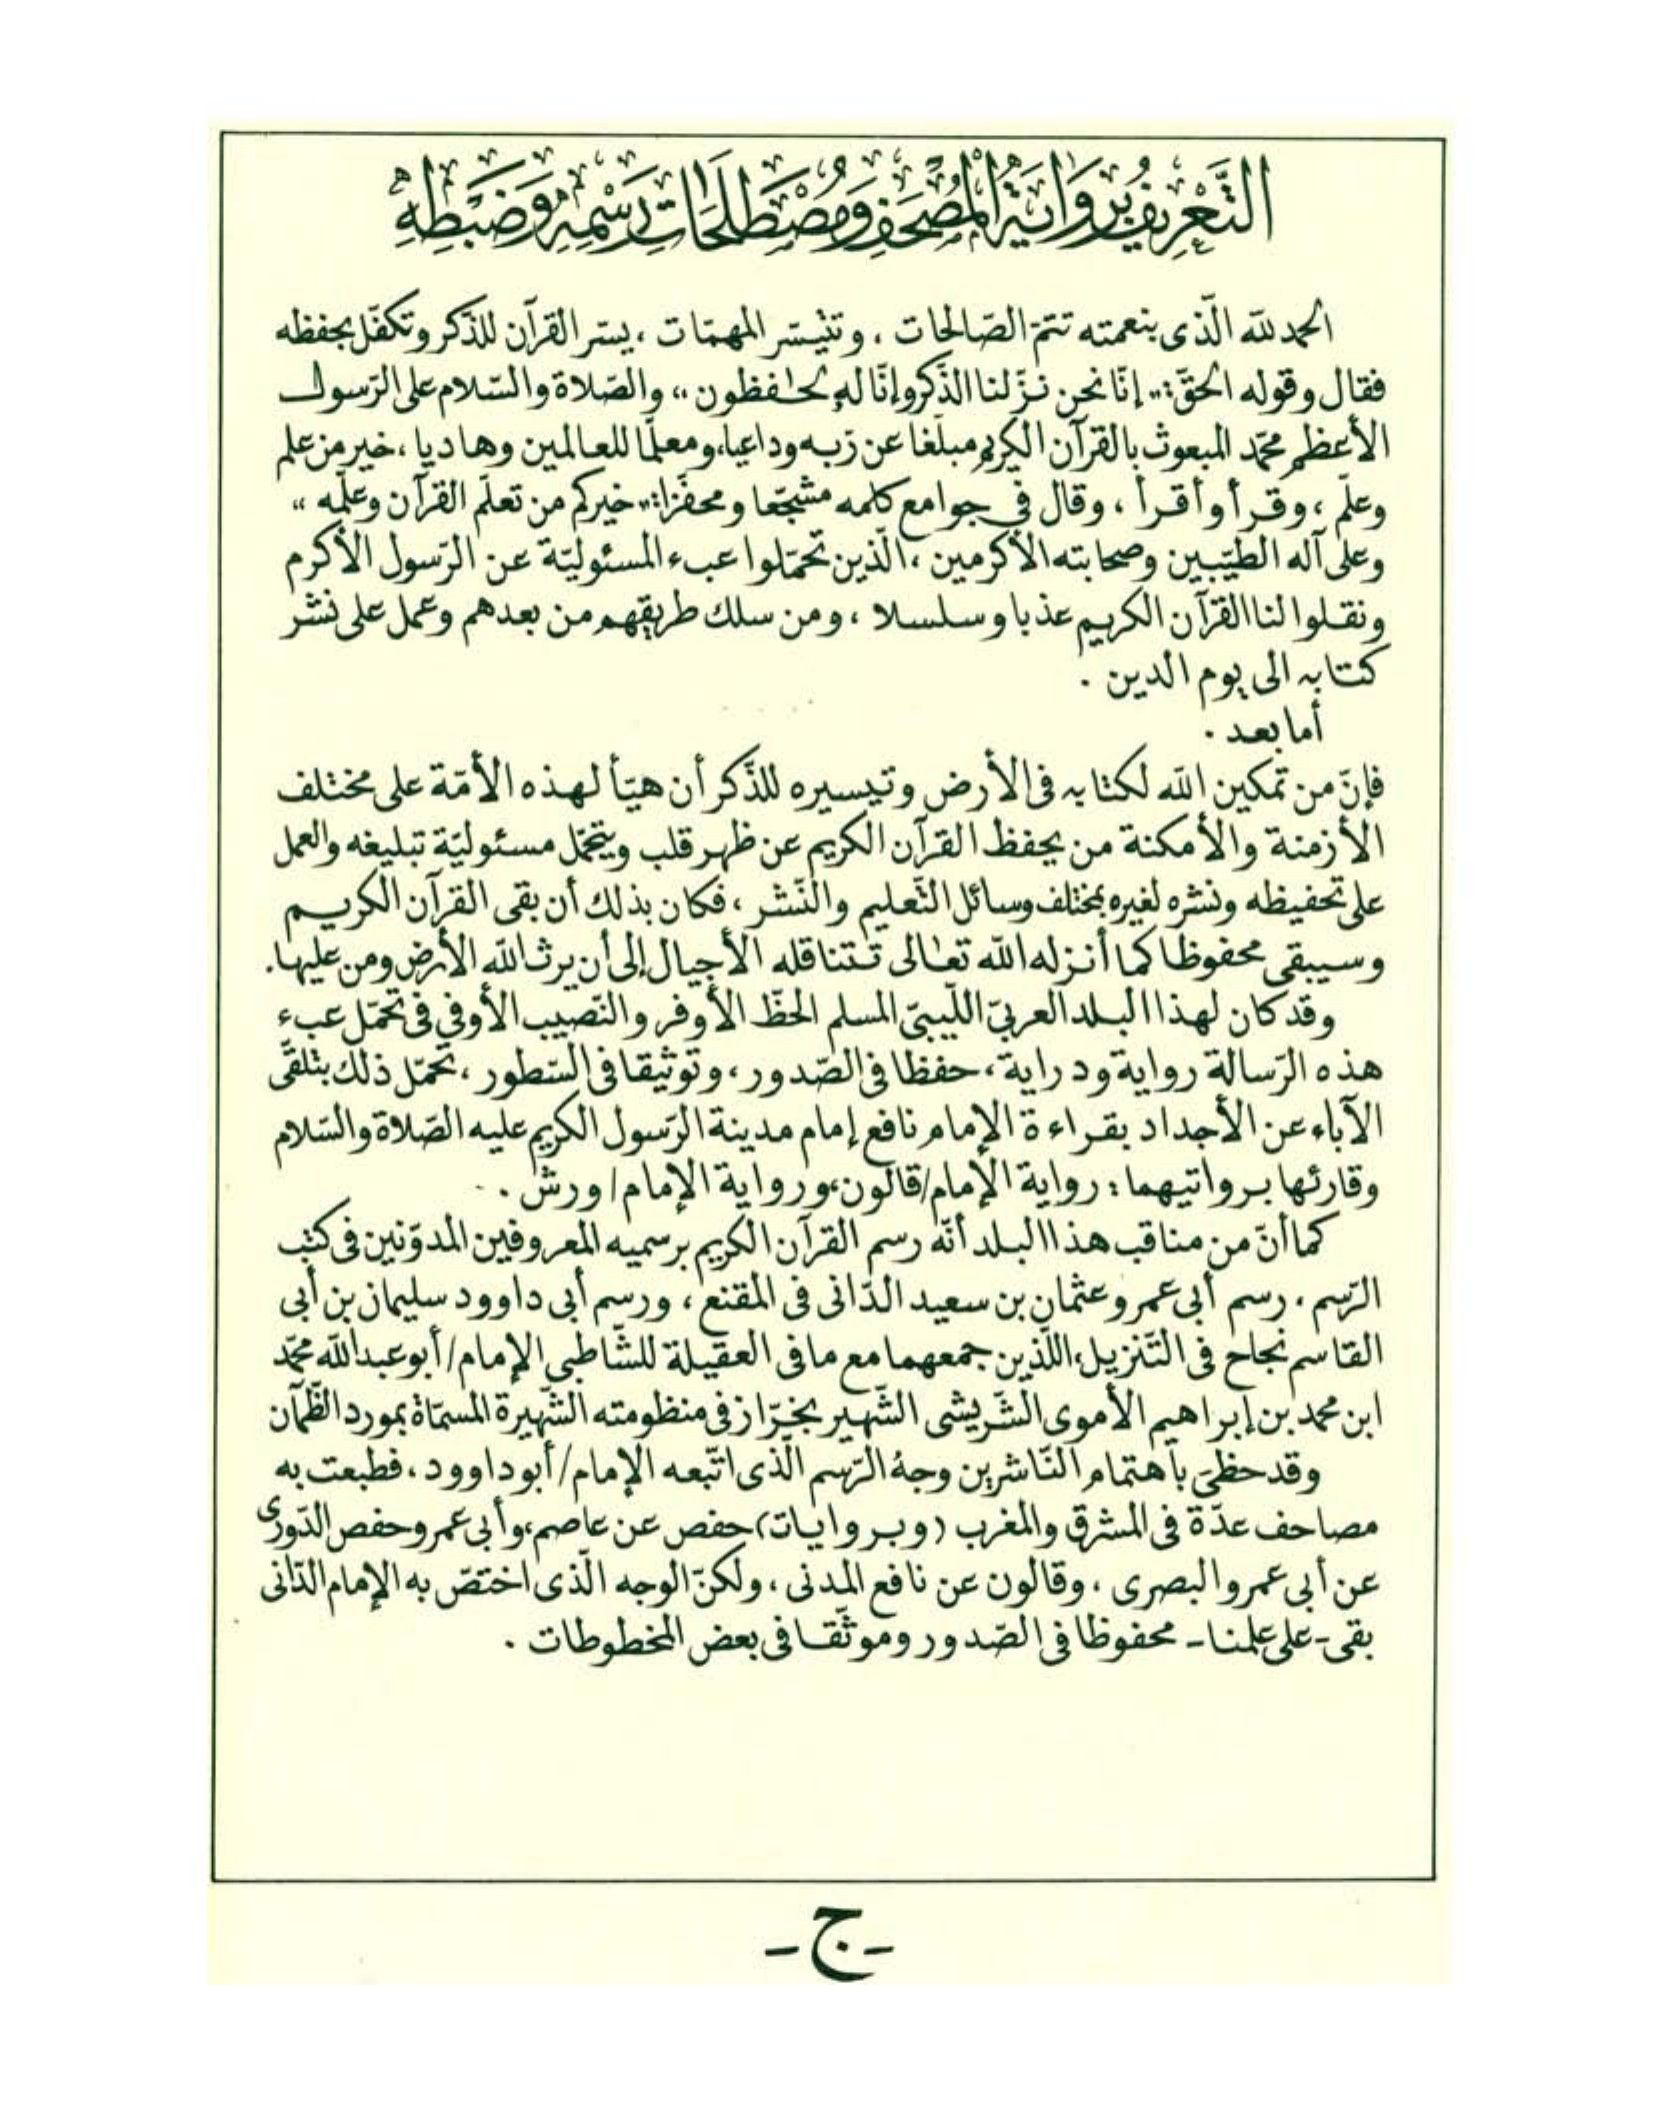 التَّعْرِيفُ بِرِوَايَةِ الْمُصْحَفِ وَمُصْطَلَحَاتِ رَسْمِهِ وَضَبْطِهِ
الحمد لله الّذى بنعمته تتمّ الصّالحات ، وتتيسّر المهمّات ، يسّر القرآن للذّكر وتكفّل بحفظه
فقال وقوله الحقّ: „ إنّا نحن نزّلنا الذّكر وإنّا له لحـٰفظون “ ، والصّلاة والسّلام على الرّسول
الأعظم محمّد المبعوث بالقرآن الكريم مبلّغا عن ربّه وداعيا، ومعلّما للعالمين وهاديا ، خير من علم
وعلّم ، وقرأ وأقرأ ، وقال فى جوامع كلمه مشجّعا ومحفّزا: „ خيركم من تعلّم القرآن وعلّمه “
وعلى آله الطيّبين وصحابته الأكرمين ، الّذين تحمّلوا عبء المسئوليّة عن الرّسول الأكرم
ونقلوا لنا القرآن الكريم عذبا وسلسلا ، ومن سلك طريقهم من بعدهم وعمل على نشر
كتابه الى يوم الدين .
أما بعد .
فإنّ من تمكين الله لكتابه فى الأرض وتيسيره للذّكر أن هيّأ لهذه الأمّة على مختلف
الأزمنة والأمكنة من يحفظ القرآن الكريم عن ظهر قلب ويتحمّل مسئوليّة تبليغه والعمل
على تحفيظه ونشره لغيره بمختلف وسائل التّعليم والنّشر ، فكان بذلك أن بقى القرآن الكريم
وسيبقى محفوظا كما أنزله الله تعالى تتناقله الأجيال إلى أن يرث الله الأرض ومن عليها.
وقد كان لهذا البلد العربىّ اللّيبىّ المسلم الحظّ الأوفر والنّصيب الأوفى فى تحمّل عبء
هذه الرّسالة رواية ودراية ، حفظا فى الصّدور ، وتوثيقا فى السّطور ، تحمّل ذلك بتلقّى
الآباء عن الأجداد بقراءة الإمام نافع إمام مدينة الرّسول الكريم عليه الصّلاة والسّلام
وقارئها بروايتيهما : رواية الإمام/ قالون، ورواية الإمام/ ورش .
كما أنّ من مناقب هذا البلد أنّه رسم القرآن الكريم برسميه المعروفين المدوّنين فى كتب
الرّسم ، رسم أبى عمرو عثمان بن سعيد الدّانى فى المقنع ، ورسم أبى داوود سليمان بن أبى
القاسم نجاح فى التّنزيل، اللّذين جمعهما مع ما فى العقيلة للشّاطبى الإمام/ أبو عبد الله محمّد
ابن محمد بن إبراهيم الأموى الشّريشى الشّهير بخرّاز فى منظومته الشّهيرة المسمّاة بمورد الظّمآن
وقد حظى باهتمام النّاشرين وجهُ الرّسم الّذى اتّبعه الإمام/ أبو داوود ، فطبعت به
مصاحف عدّة فى المشرق والمغرب (وبروايات) حفص عن عاصم، وأبى عمرو حفص الدّورى
عن أبى عمرو البصرى ، وقالون عن نافع المدنى ، ولكنّ الوجه الّذى اختصّ به الإمام الدّانى
بقى - على علمنا - محفوظا فى الصّدور وموثّقا فى بعض المخطوطات .
- ج -